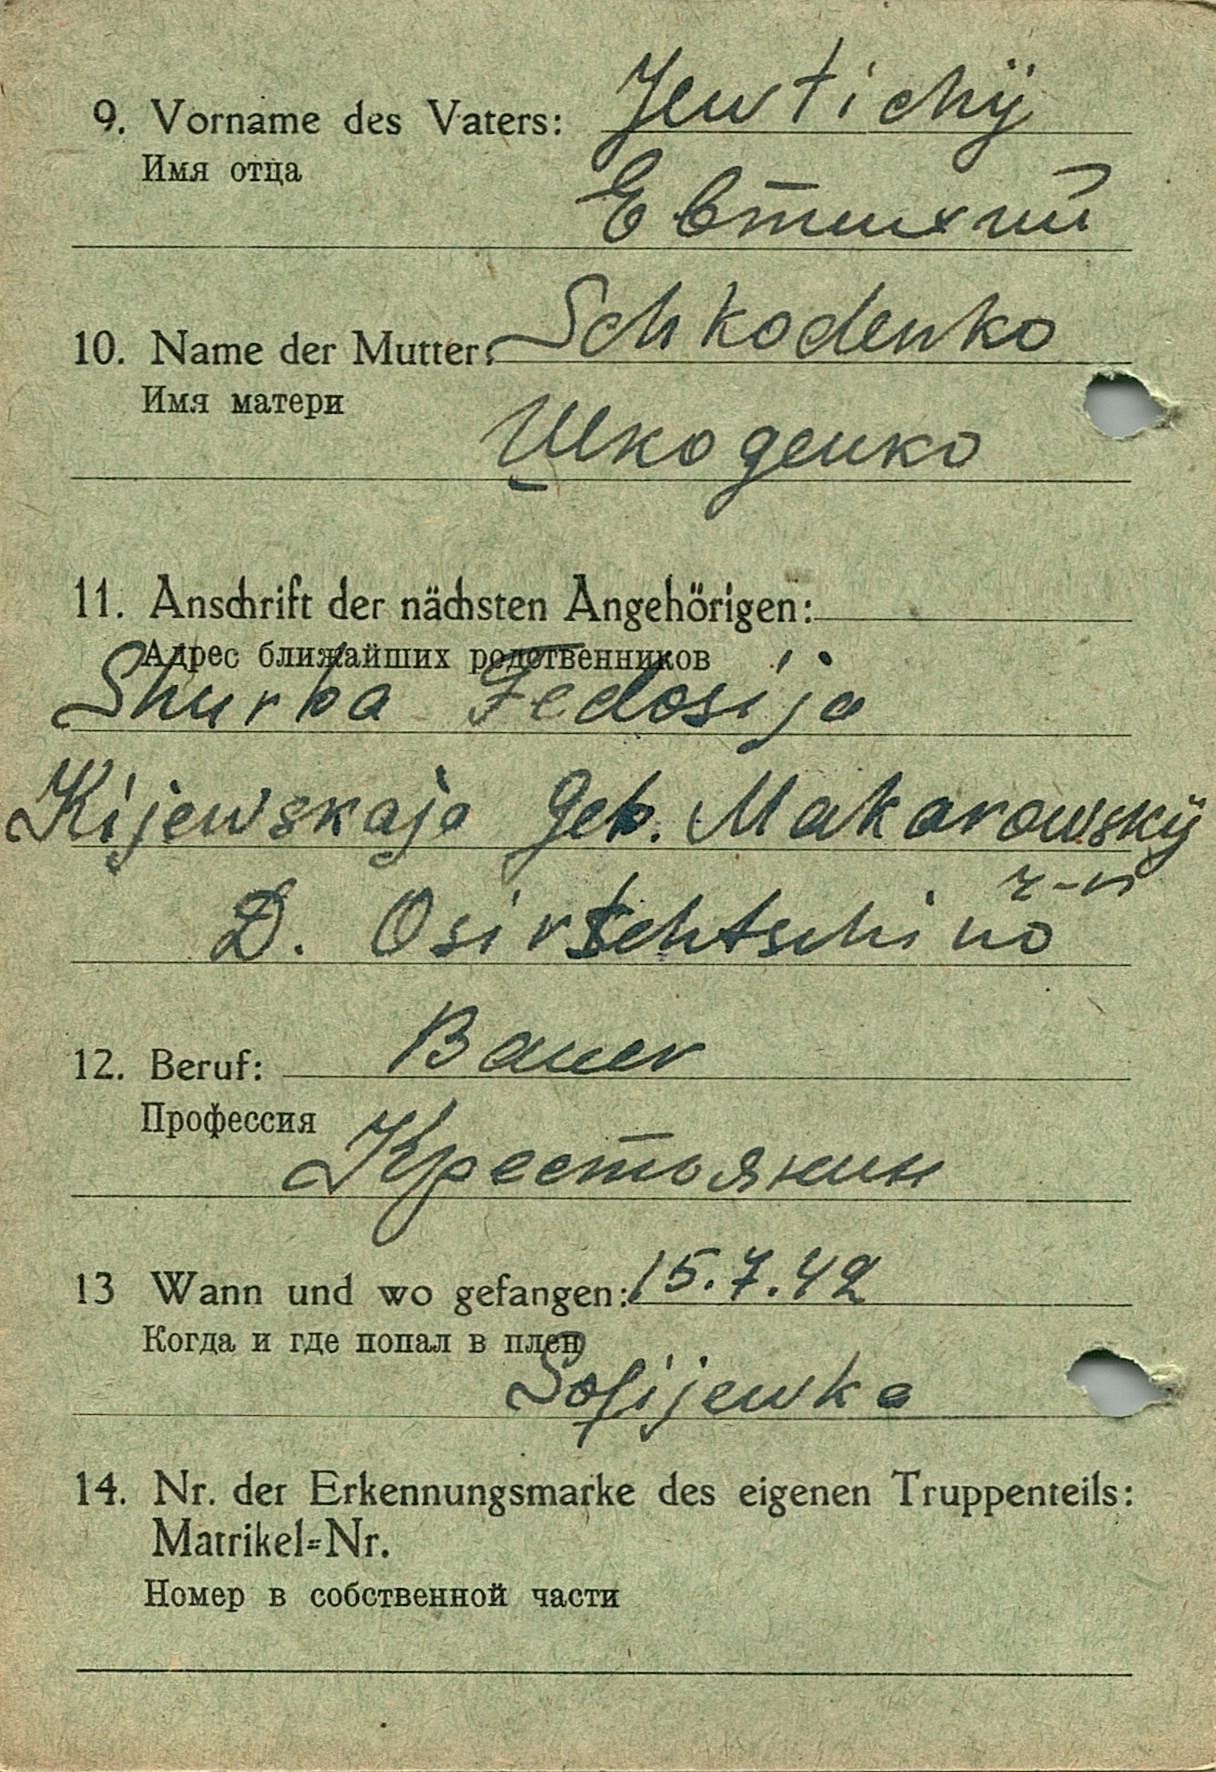 9. Vorname des Vaters: Jewtichÿ
Имя отца
Евтихий
10. Name der Mutter: Schkodenko
Имя матери
Шкоденко
11. Anschrift der nächsten Angehörigen:
Адрес ближайших родственников
Shurba Fedosija
Kijewskaja Geb. Makarowskÿ
r-n
D. Osirtschtschino
12. Beruf: Bauer
Профессия
Крестьянин
13 Wann und wo gefangen: 15.7.42
Когда и где попал в плен
Sofijewka
14. Nr. der Erkennungsmarke des eigenen Truppenteils:
Matrikel=Nr.
Номер в собственной части